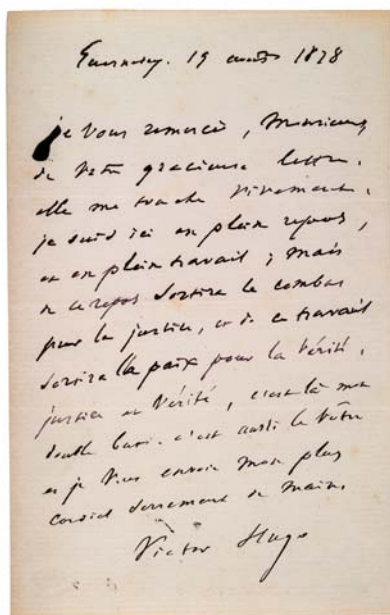 Guernesey. 19 août 1878
je vous remercie, Monsieur,
de votre gracieuse lettre.
elle me touche vivement.
je suis ici en plein repos,
et en plein travail ; mais
de ce repos sortira le combat
pour la justice, et de ce travail
sortira la paix pour la vérité.
justice et vérité, c'est là mon
double but. c'est aussi le vôtre
et je vous envoie mon plus
cordial serrement de main.
Victor Hugo